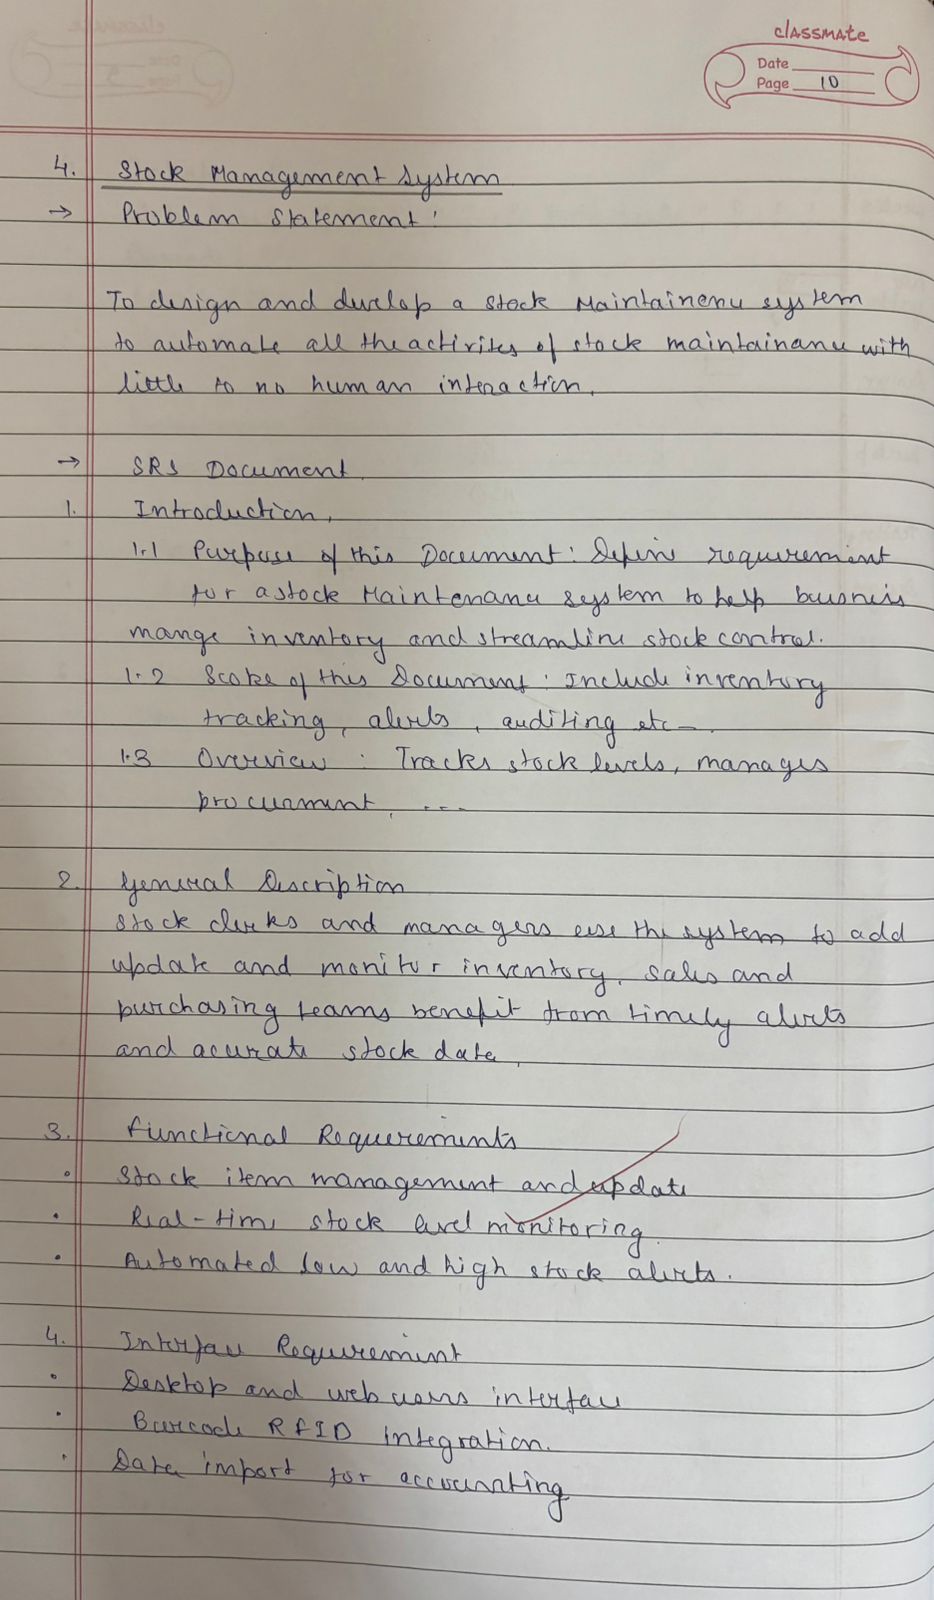 classmate
Date
Page 10
4. Stock Management System
→ Problem Statement:
To design and develop a stock Maintainence system
to automate all the activites of stock maintainance with
little to no human interaction.
→ SRS Document
1. Introduction.
1.1 Purpose of this Document: Define requirement
for a stock Maintenance system to help business
mange inventory and streamline stock control.
1.2 Scope of this Document: Include inventory
tracking, alerts, auditing etc-.
1.3 Overview : Tracks stock levels, manages
procurment, ---
2. General Description
Stock clerks and managers use the system to add
update and monitor inventory. Sales and
purchasing teams benefit from timely alerts
and acurate stock data.
3. Functional Requirements
• Stock item management and update
• Real-time stock level monitoring.
• Automated low and high stock alerts.
4. Interface Requirement
• Desktop and web users interface
• Barcode RFID integration.
• Data import for accounting